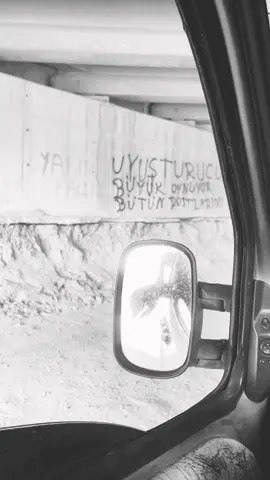 UYUŞTURUCU
BÜYÜK OYNUYOR
BÜTÜN DOSTLARIM